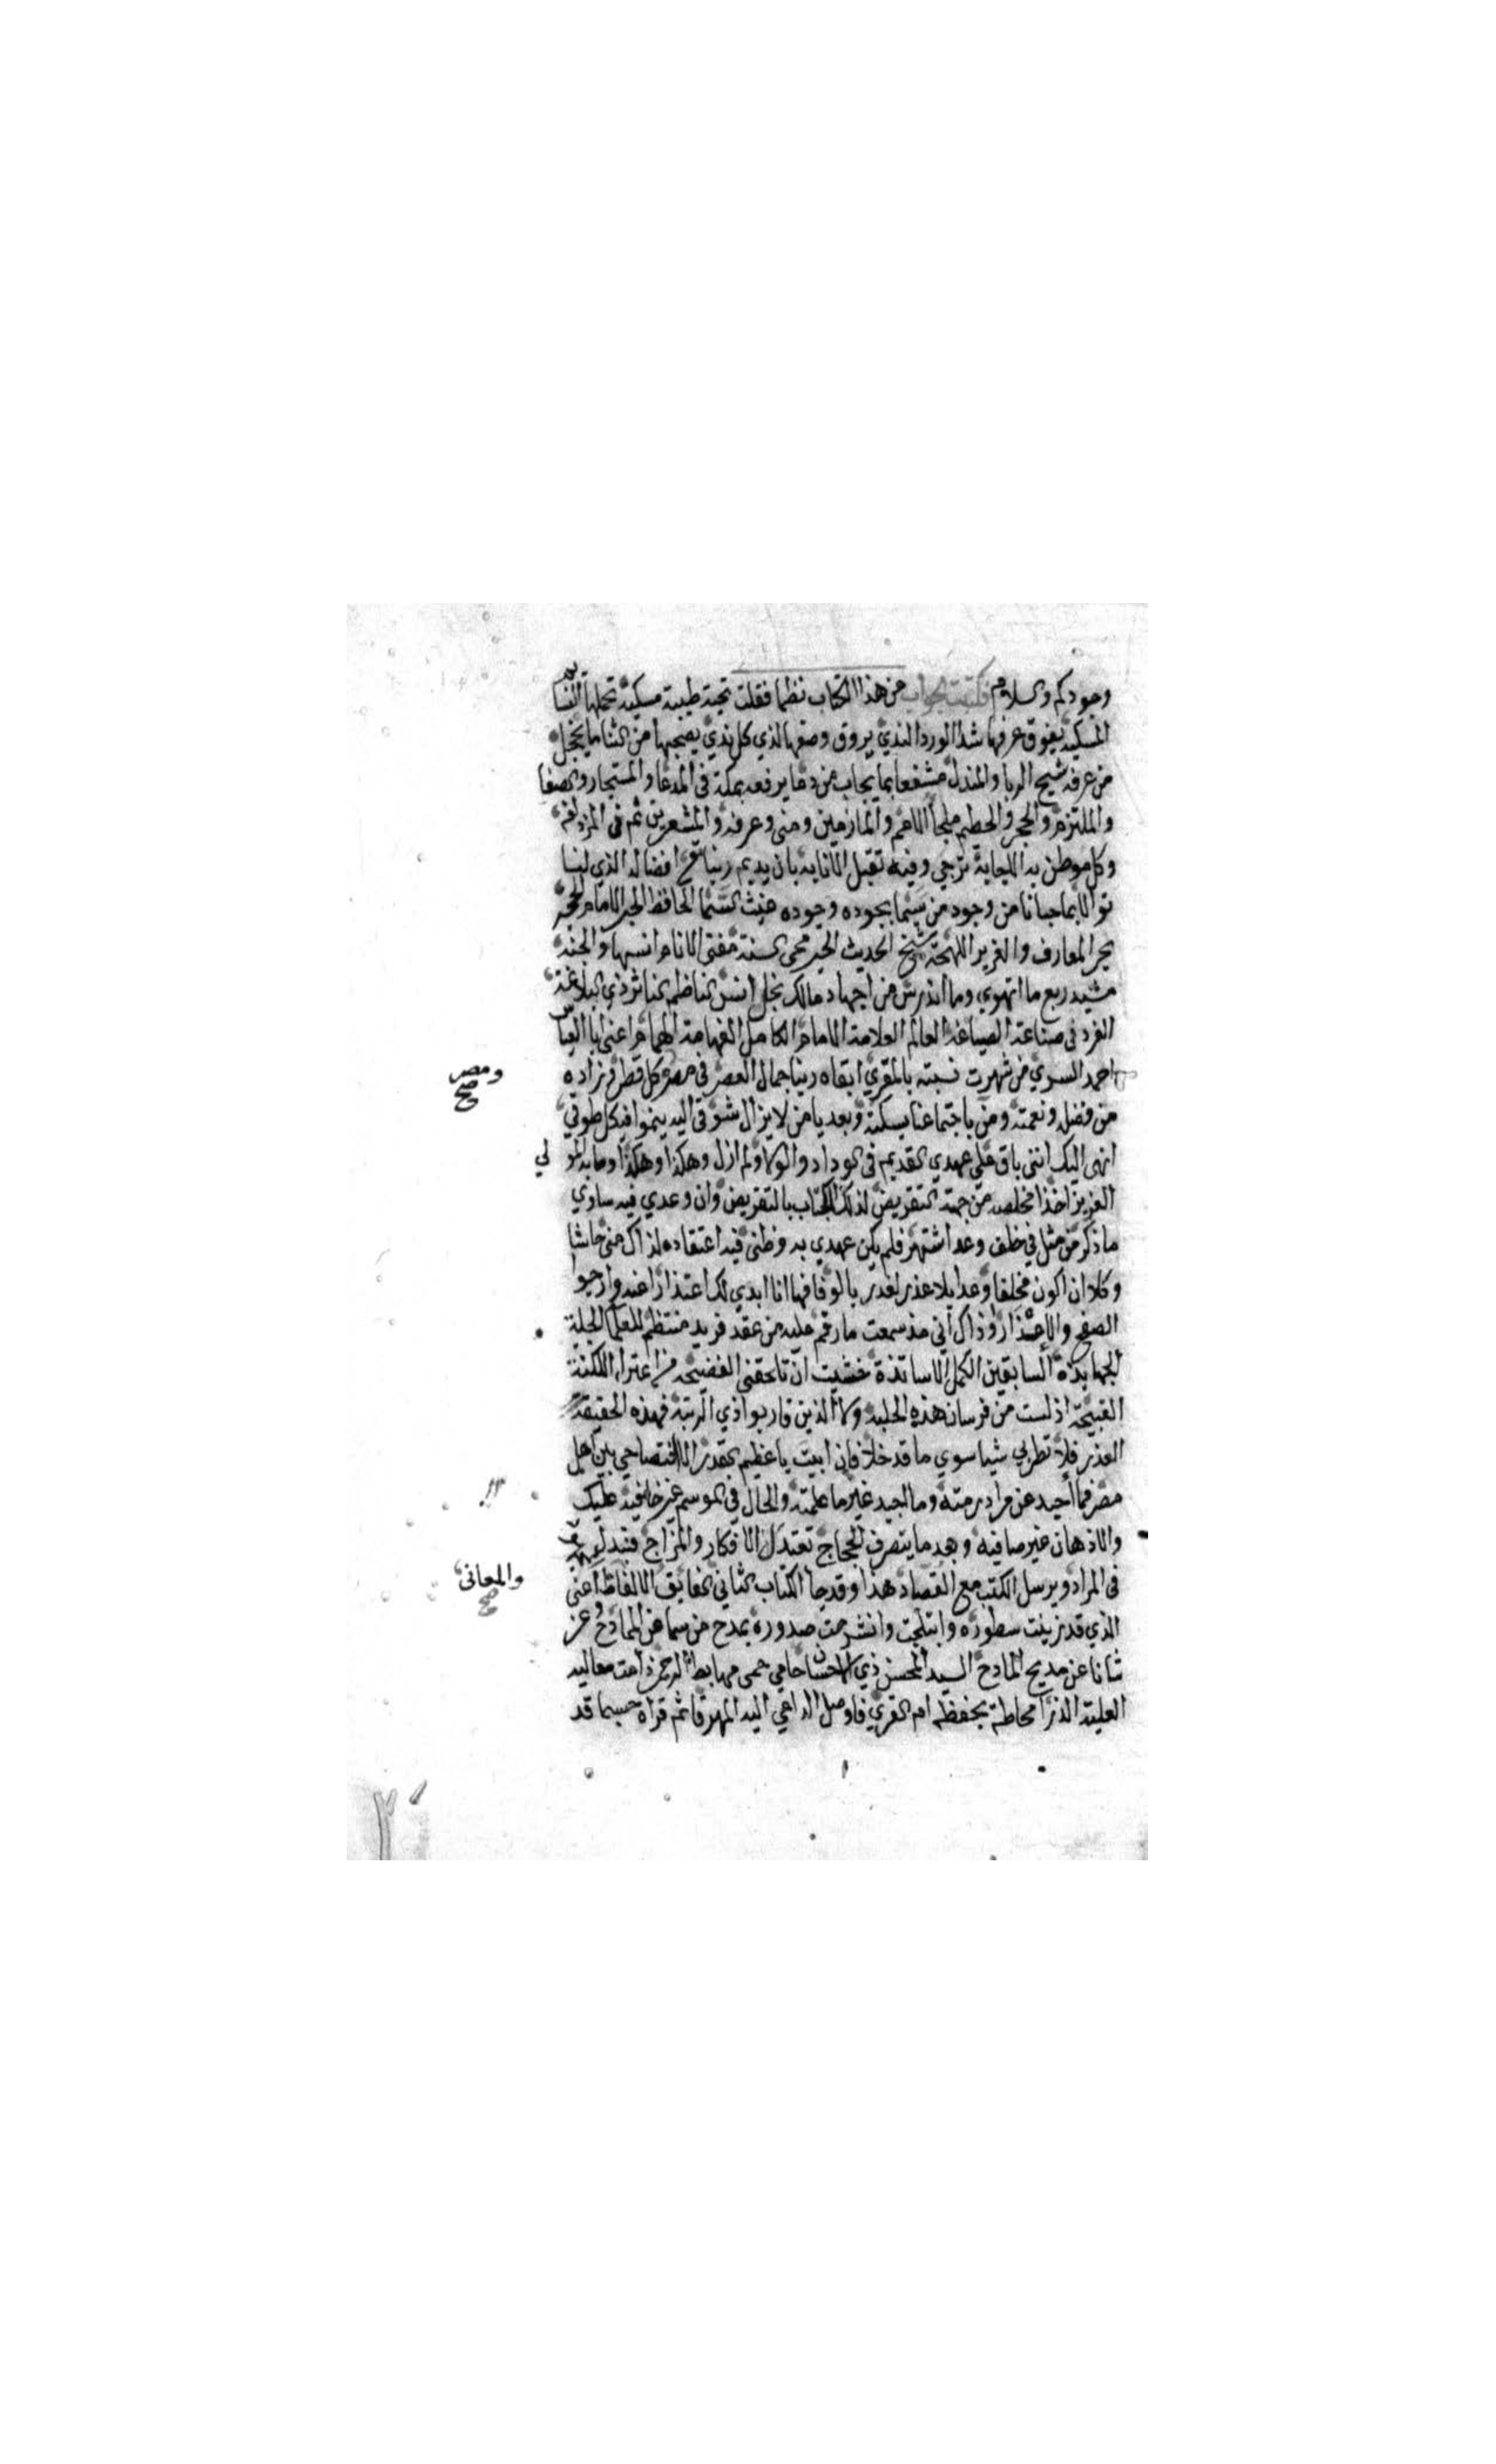 وجودكم والسلام فكتبت الجواب عن هذا الكتاب نظما فقلت تحية طيبة مسكية تحملها أنفاس
المسكية يفوق عرفها شذا الورد الندي يروق وصفها لذي كل ندي يصحبها من الثنا ما يخجل
من عرفه شيح الربا والمندل مشفعا بما يجاب من دعا يرفعه بمكة في المدعا والمستجار والصفا
والملتزم والحجر والحطيم ملجأ الامم والمازمين ومنى وعرفه والمشعرين ثم في المزدلفه
وكل موطن به الاجابة ترجي وفيه تقبل الانابه بان يديم ربنا افضاله الذي لنا
توالا بما حبانا من وجود من سما بجوده وجوده غيث السما الحافظ الحبر الامام الحجه
بحر المعارف والغزير اللجه شيخ الحديث الحبر محيى السنه مفتي الانام انسها والجنه
مشيد ربع ما انتهوي وما اندرس من اجهاد مالك نجل انس الناظم الناثر ذي البلاغه
الفرد في صناعة الصياغه العالم العلامة الامام الكامل الفهامة الهمام اعني ابا العباس
احمد السري من شهرت نسبته بالمقري ابقاه ربنا جمال العصر في مصره وكل قطر وزاده
ومصر صح
من فضله ونعمته ومن باجتماعنا بسكته وبعد يا من لا يزال شوقي اليه ينموا فيه كل طوقي
انهي اليك انني باق على عهدي القديم في الوداد والولا ولم ازل وهكذا وهكذا وما به المولي
العزيز اخذا مخلصه من جهة التقريض لذلك الكتاب بالتقريض وان وعدي فيه ساوي
ما ذكر من مثل في خلف وعد اشتهر فلم يكن عهدي به وظني فيه اعتقاده لذاك مني حاشا
وكلا ان اكون مخلفا وعدا بلا عذر لغدر بالوفا فها انا ابدي لك اعتذارا عنه وارجوا
الصفح والاعتذار وذاك اني مذ سمعت ما رقم عليه من عقد فريد منتظم للعلما الجلة
الجهابذة السابقين الكمل الاساتذة خشيت ان تلحقني الفضيحه من اعتراء اللكنة
القبيحة اذ لست من فرسان هذه الحلبه ولا الذين قاربوا ذي الرتبة فهذه الحقيقة
العذر فلا تظن بي شيا سوي ما قد خلا فان ابيت يا عظيم القدر الا افتضاحي بين اهل
مصر فما احيد عن مراد رمته وما الجيد غير ما علمته والحال في الموسم غير خافيه عليك
والاذهان غير صافيه وبعد ما ينصرف الحجاج تعتدل الافكار والمزاج فنبذل
في المراد ويرسل الكتب مع القصاد هذا وقد جا الكتاب الثاني الفايق الالفاظ اعني
والمعاني صح
الذي قد زينت سطوره وابتلجت وانشرحت صدوره بمدح من سما عن المادح وعز
شانا عن مديح المادح السيد المحسن ذي الاحسان حامي حمى مهابط الرحمن دامت معاليه
العلية الذرا محاطة بحفظه ام القري فاوصل الداعي اليه المهرقا ثم قراه حسبما قد